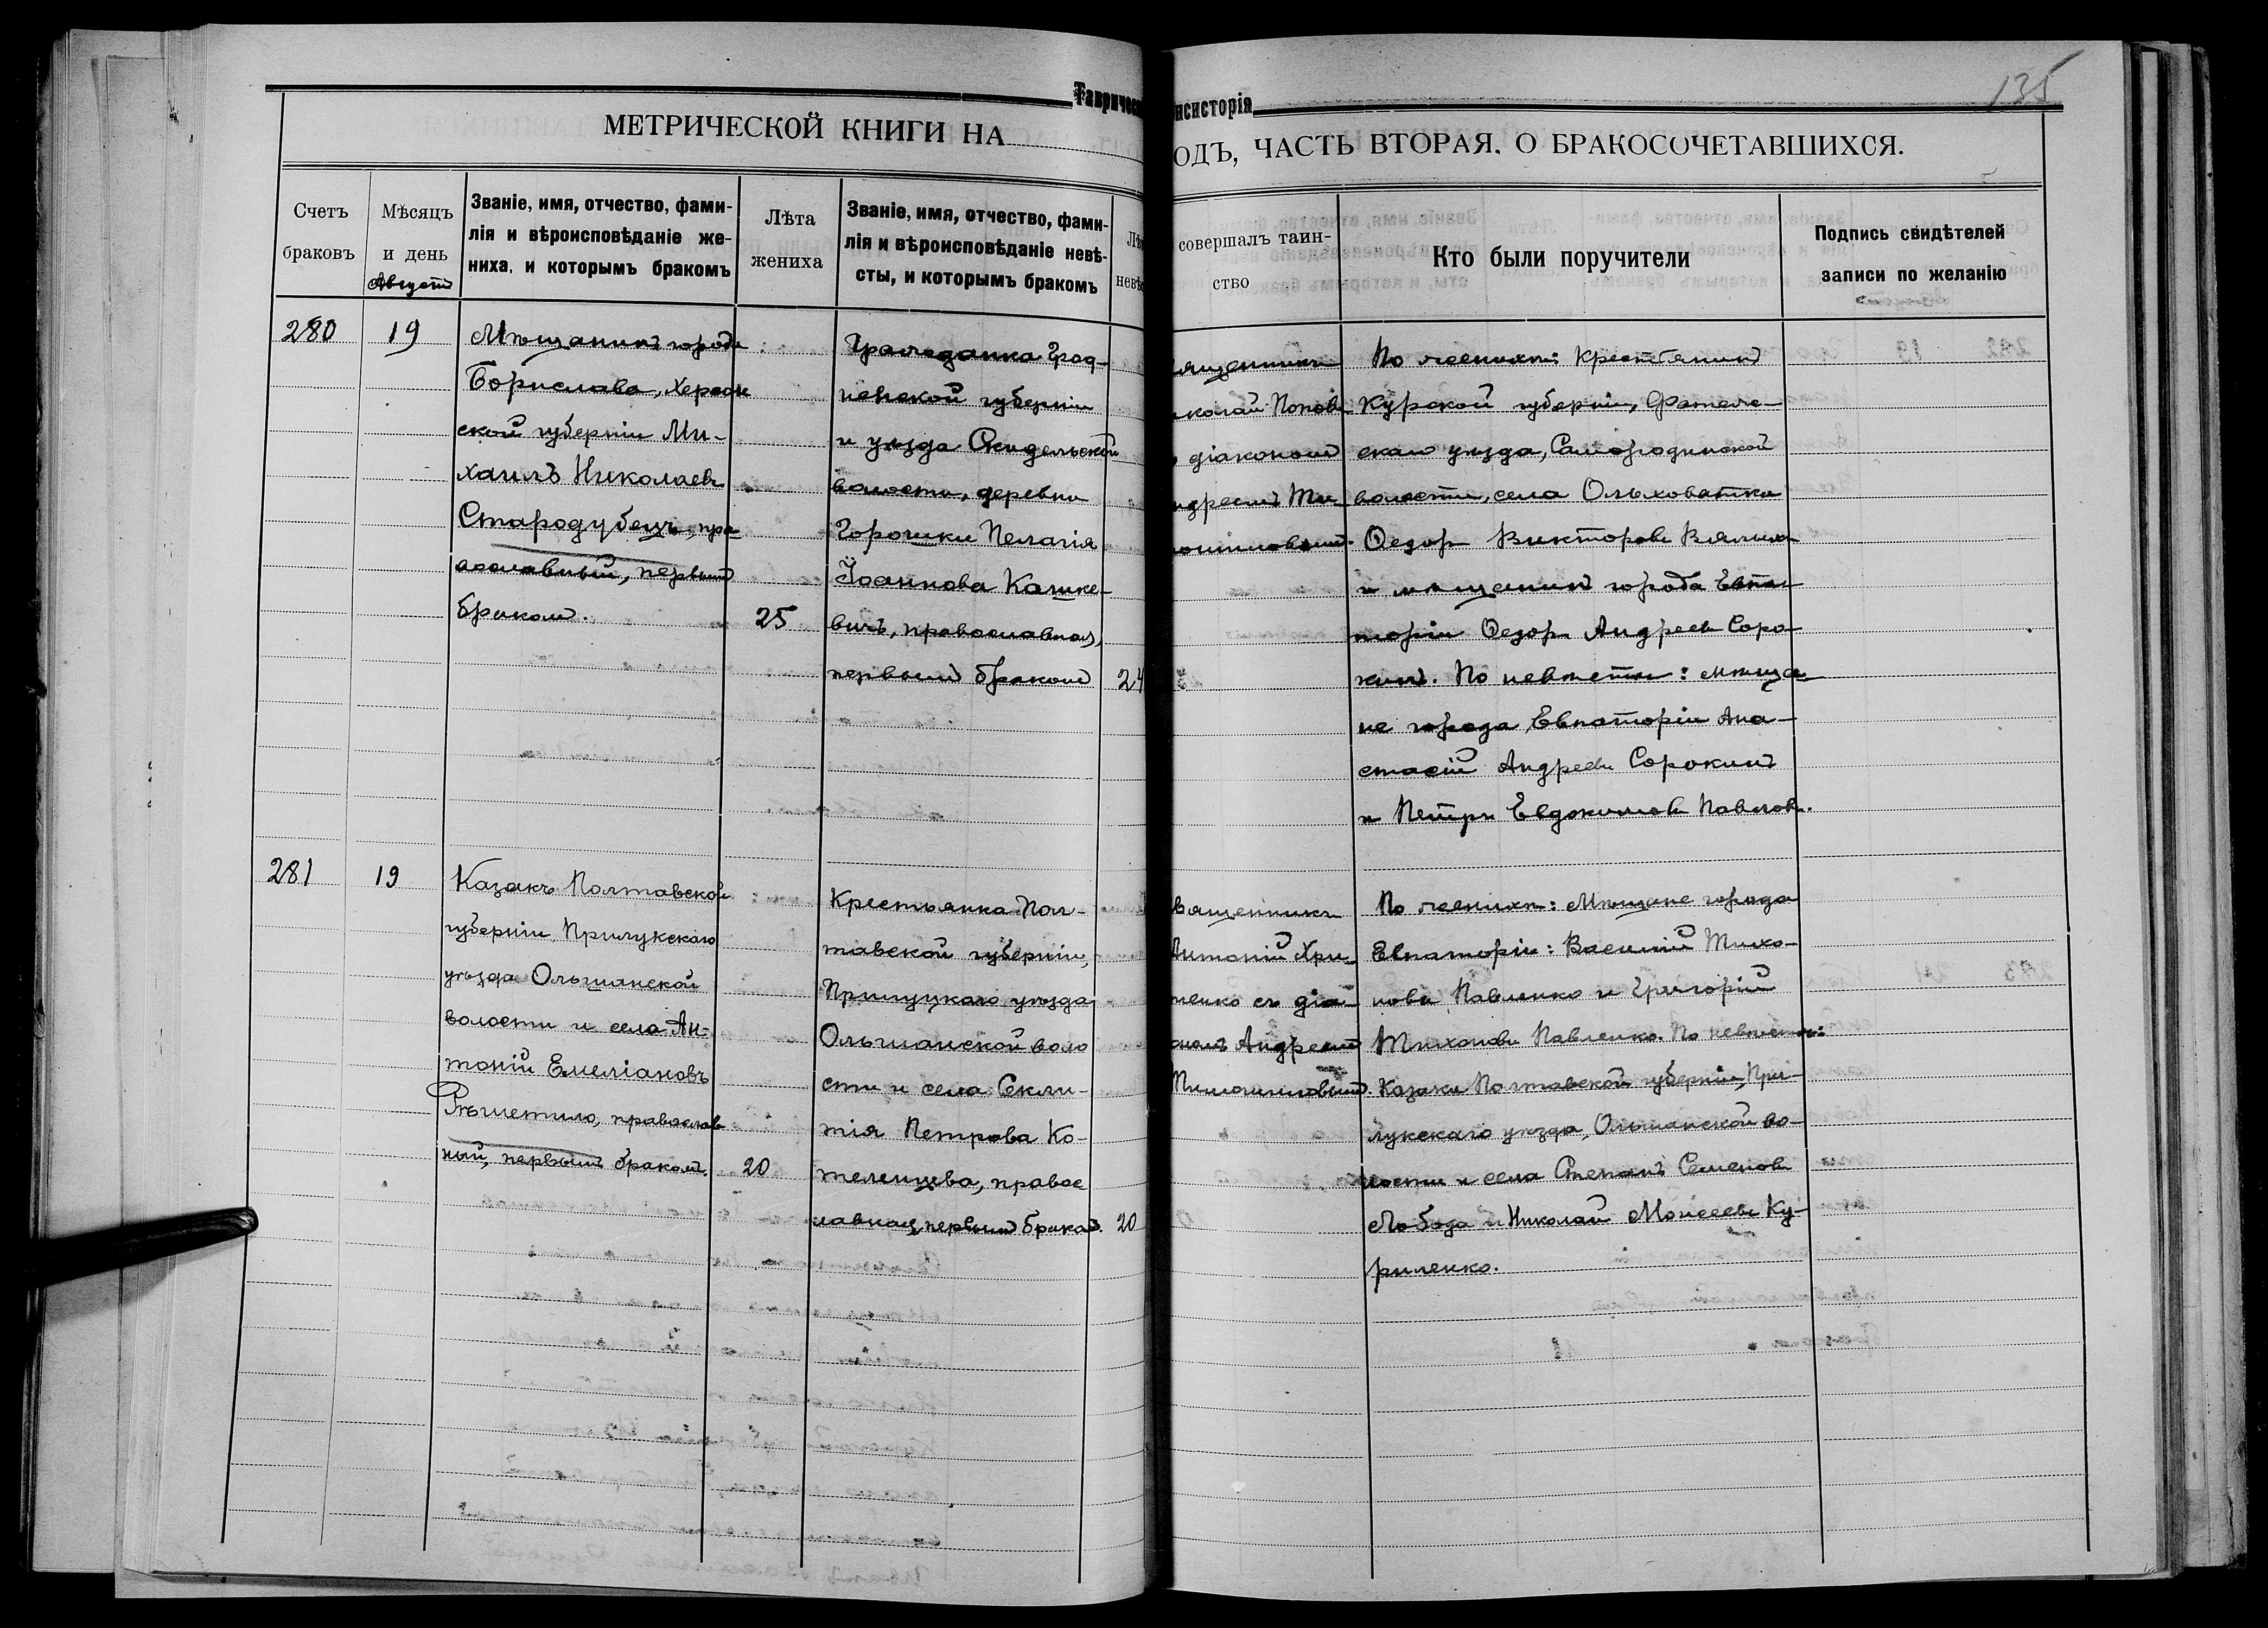 135
Тавричес
нсисторія
МЕТРИЧЕСКОЙ КНИГИ НА
ОДЪ, ЧАСТЬ ВТОРАЯ, О БРАКОСОЧЕТАВШИХСЯ.
Счетъ
браковъ
Мѣсяцъ
и день
Августъ
Званіе, имя, отчество, фами-
лія и вѣроисповѣданіе же-
ниха, и которымъ бракомъ
Лѣта
жениха
Званіе, имя, отчество, фами-
лія и вѣроисповѣданіе невѣ-
сты, и которымъ бракомъ
Лѣ
невѣ
совершалъ таин-
ство
Кто были поручители
Подпись свидѣтелей
записи по желанію
280
19
Мѣщанинъ города
Борислава, Херсон
ской губерніи Ми-
хаилъ Николаевъ
Стародубецъ, пра
вославный, первымъ
бракомъ.
25
Гражданка Грод-
ненской губерніи
и уѣзда Скидельской
волости, деревни
Горошки Пелагія
Іоаннова Кашке-
вичъ, православная,
первымъ бракомъ
24
ященникъ
иколай Поповъ
діакономъ
ндреемъ Ти
мошиловымъ.
По женихѣ: Крестьянинъ
Курской губерніи, Фатеж-
скаго уѣзда, Самородинской
волости, села Ольховатки
Ѳедоръ Викторовъ
и мѣщанинъ города Евпа-
торіи Ѳедоръ Андреевъ Соро-
кинъ. По невѣстѣ: мѣща
не города Евпаторіи Ана-
стасій Андреевъ Сорокинъ
и Петръ Евдокимовъ Павловъ.
281
19
Казакъ Полтавской
губерніи, Прилукскаго
уѣзда Ольшанской
волости и села Ан-
тоній Емеліановъ
Рѣшетило, православ
ный, первымъ бракомъ.
20
Крестьянка Пол-
тавской губерніи,
Прилуцкаго уѣзда
Ольшанской воло
сти и села Секли-
тія Петрова Ко-
теленцева, правос
лавная, первымъ бракомъ.
20
вященникъ
Антоній Хри-
пенко съ діа-
ономъ Андреемъ
По женихѣ: Мѣщане города
Евпаторіи: Василій Тихо-
новъ Павленко и Григорій
Тихоновъ Павленко. По невѣстѣ:
Казаки Полтавской губерніи, При-
лукскаго уѣзда, Ольшанской во-
лости и села Степанъ Семеновъ
Лобода и Николай Моисеевъ Ку-
риленко.